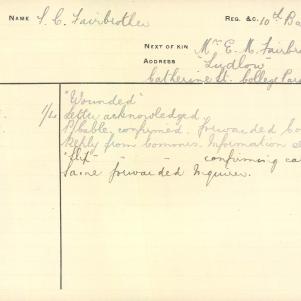 NAME S. C. Fairbrother REG. &C. 10th Ba
NEXT OF KIN Mrs E. M. Fairbr
ADDRESS "Ludlow"
Catherine St. College Par
"Wounded"
1/ Letter acknowledged
Cable confirmed. Forwarded Co
Reply from Comones. Information
confirming ca
Same forwarded Inquirer.